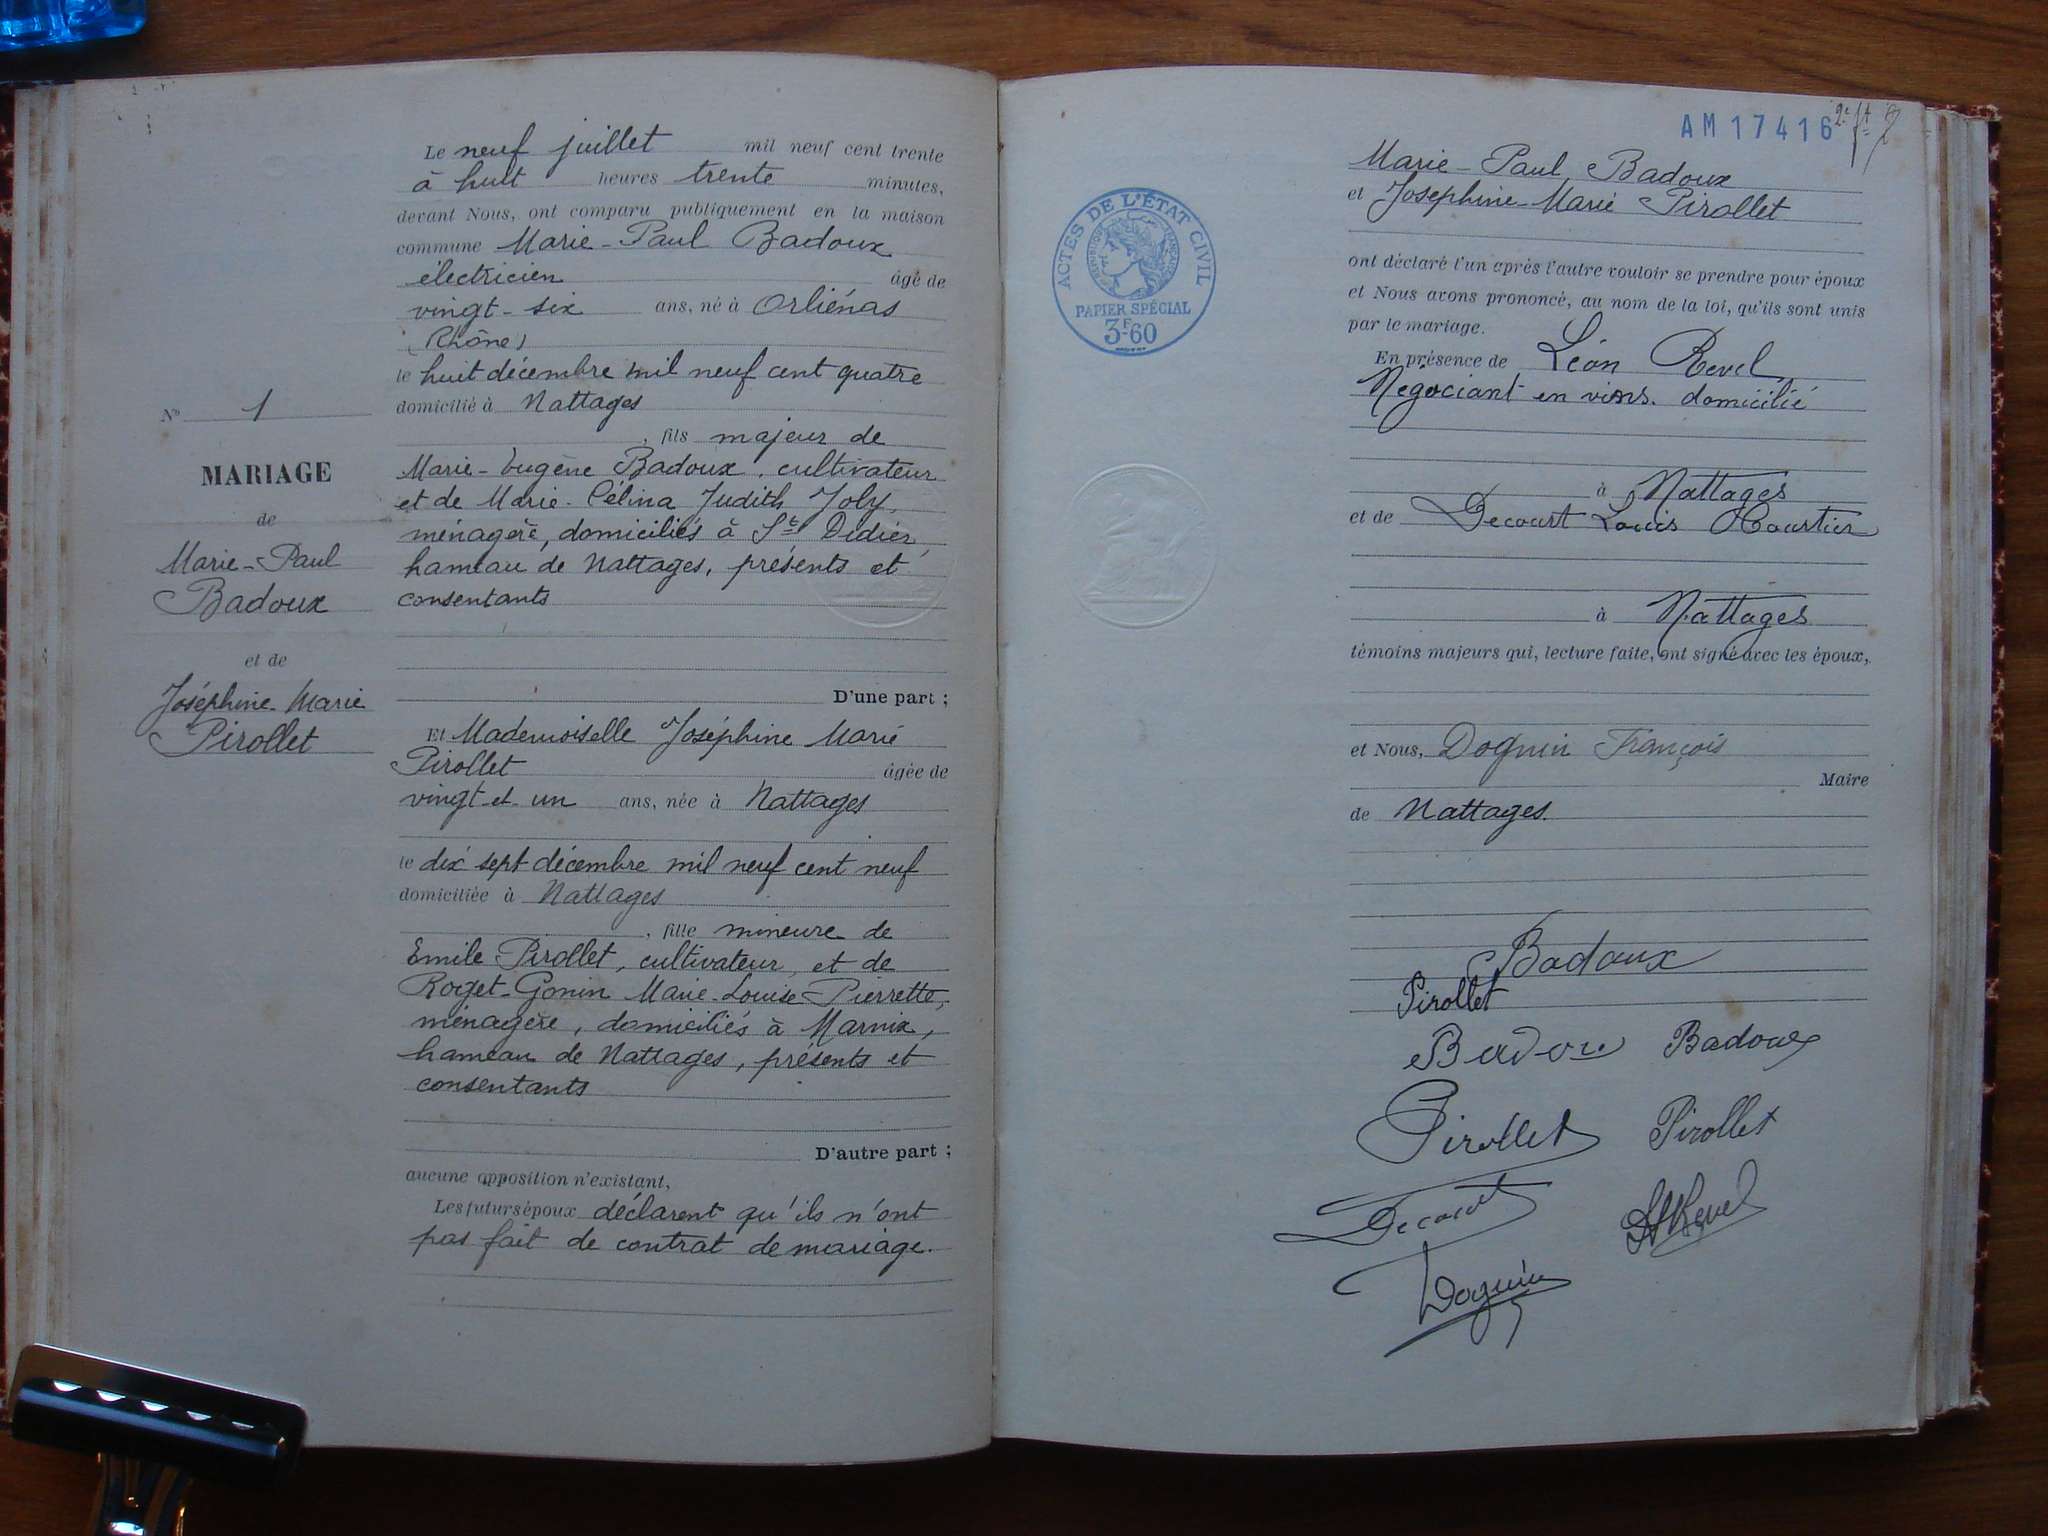 Le neuf juillet mil neuf cent trente
à huit heures trente minutes,
devant Nous, ont comparu publiquement en la maison
commune Marie-Paul Badoux
électricien âgé de
vingt-six ans, né à Orliénas
(Rhône)
le huit décembre mil neuf cent quatre
domicilié à Nattages
, fils majeur de
Marie-Eugène Badoux, cultivateur
et de Marie-Célina Judith Joly,
ménagère, domiciliés à St Didier,
hameau de Nattages, présents et
consentants
D'une part ;
Et Mademoiselle Joséphine Marie
Pirollet âgée de
vingt-et-un ans, née à Nattages
le dix sept décembre mil neuf cent neuf
domiciliée à Nattages
, fille mineure de
Emile Pirollet, cultivateur, et de
Roget-Gonin Marie-Louise-Pierrette,
ménagère, domiciliés à Marnix,
hameau de Nattages, présents et
consentants
D'autre part ;
aucune opposition n'existant,
Les futurs époux déclarent qu'ils n'ont
pas fait de contrat de mariage.
No 1
MARIAGE
de
Marie-Paul
Badoux
et de
Joséphine Marie
Pirollet
AM17416
ACTES DE L'ÉTAT CIVIL
RÉPUBLIQUE FRANÇAISE
PAPIER SPÉCIAL
3F60
Marie-Paul Badoux
et Joséphine-Marie Pirollet
ont déclaré l'un après l'autre vouloir se prendre pour époux
et Nous avons prononcé, au nom de la loi, qu'ils sont unis
par le mariage.
En présence de Léon Revel
Négociant en vins. domicilié
à Nattages
et de Decourt Louis
à Nattages
témoins majeurs qui, lecture faite, ont signé avec les époux,
et Nous, Doguin François
Maire
de Nattages.
Badoux
Pirollet
Badoux Badoux
Pirollet Pirollet
Decourt Revel
Doguin